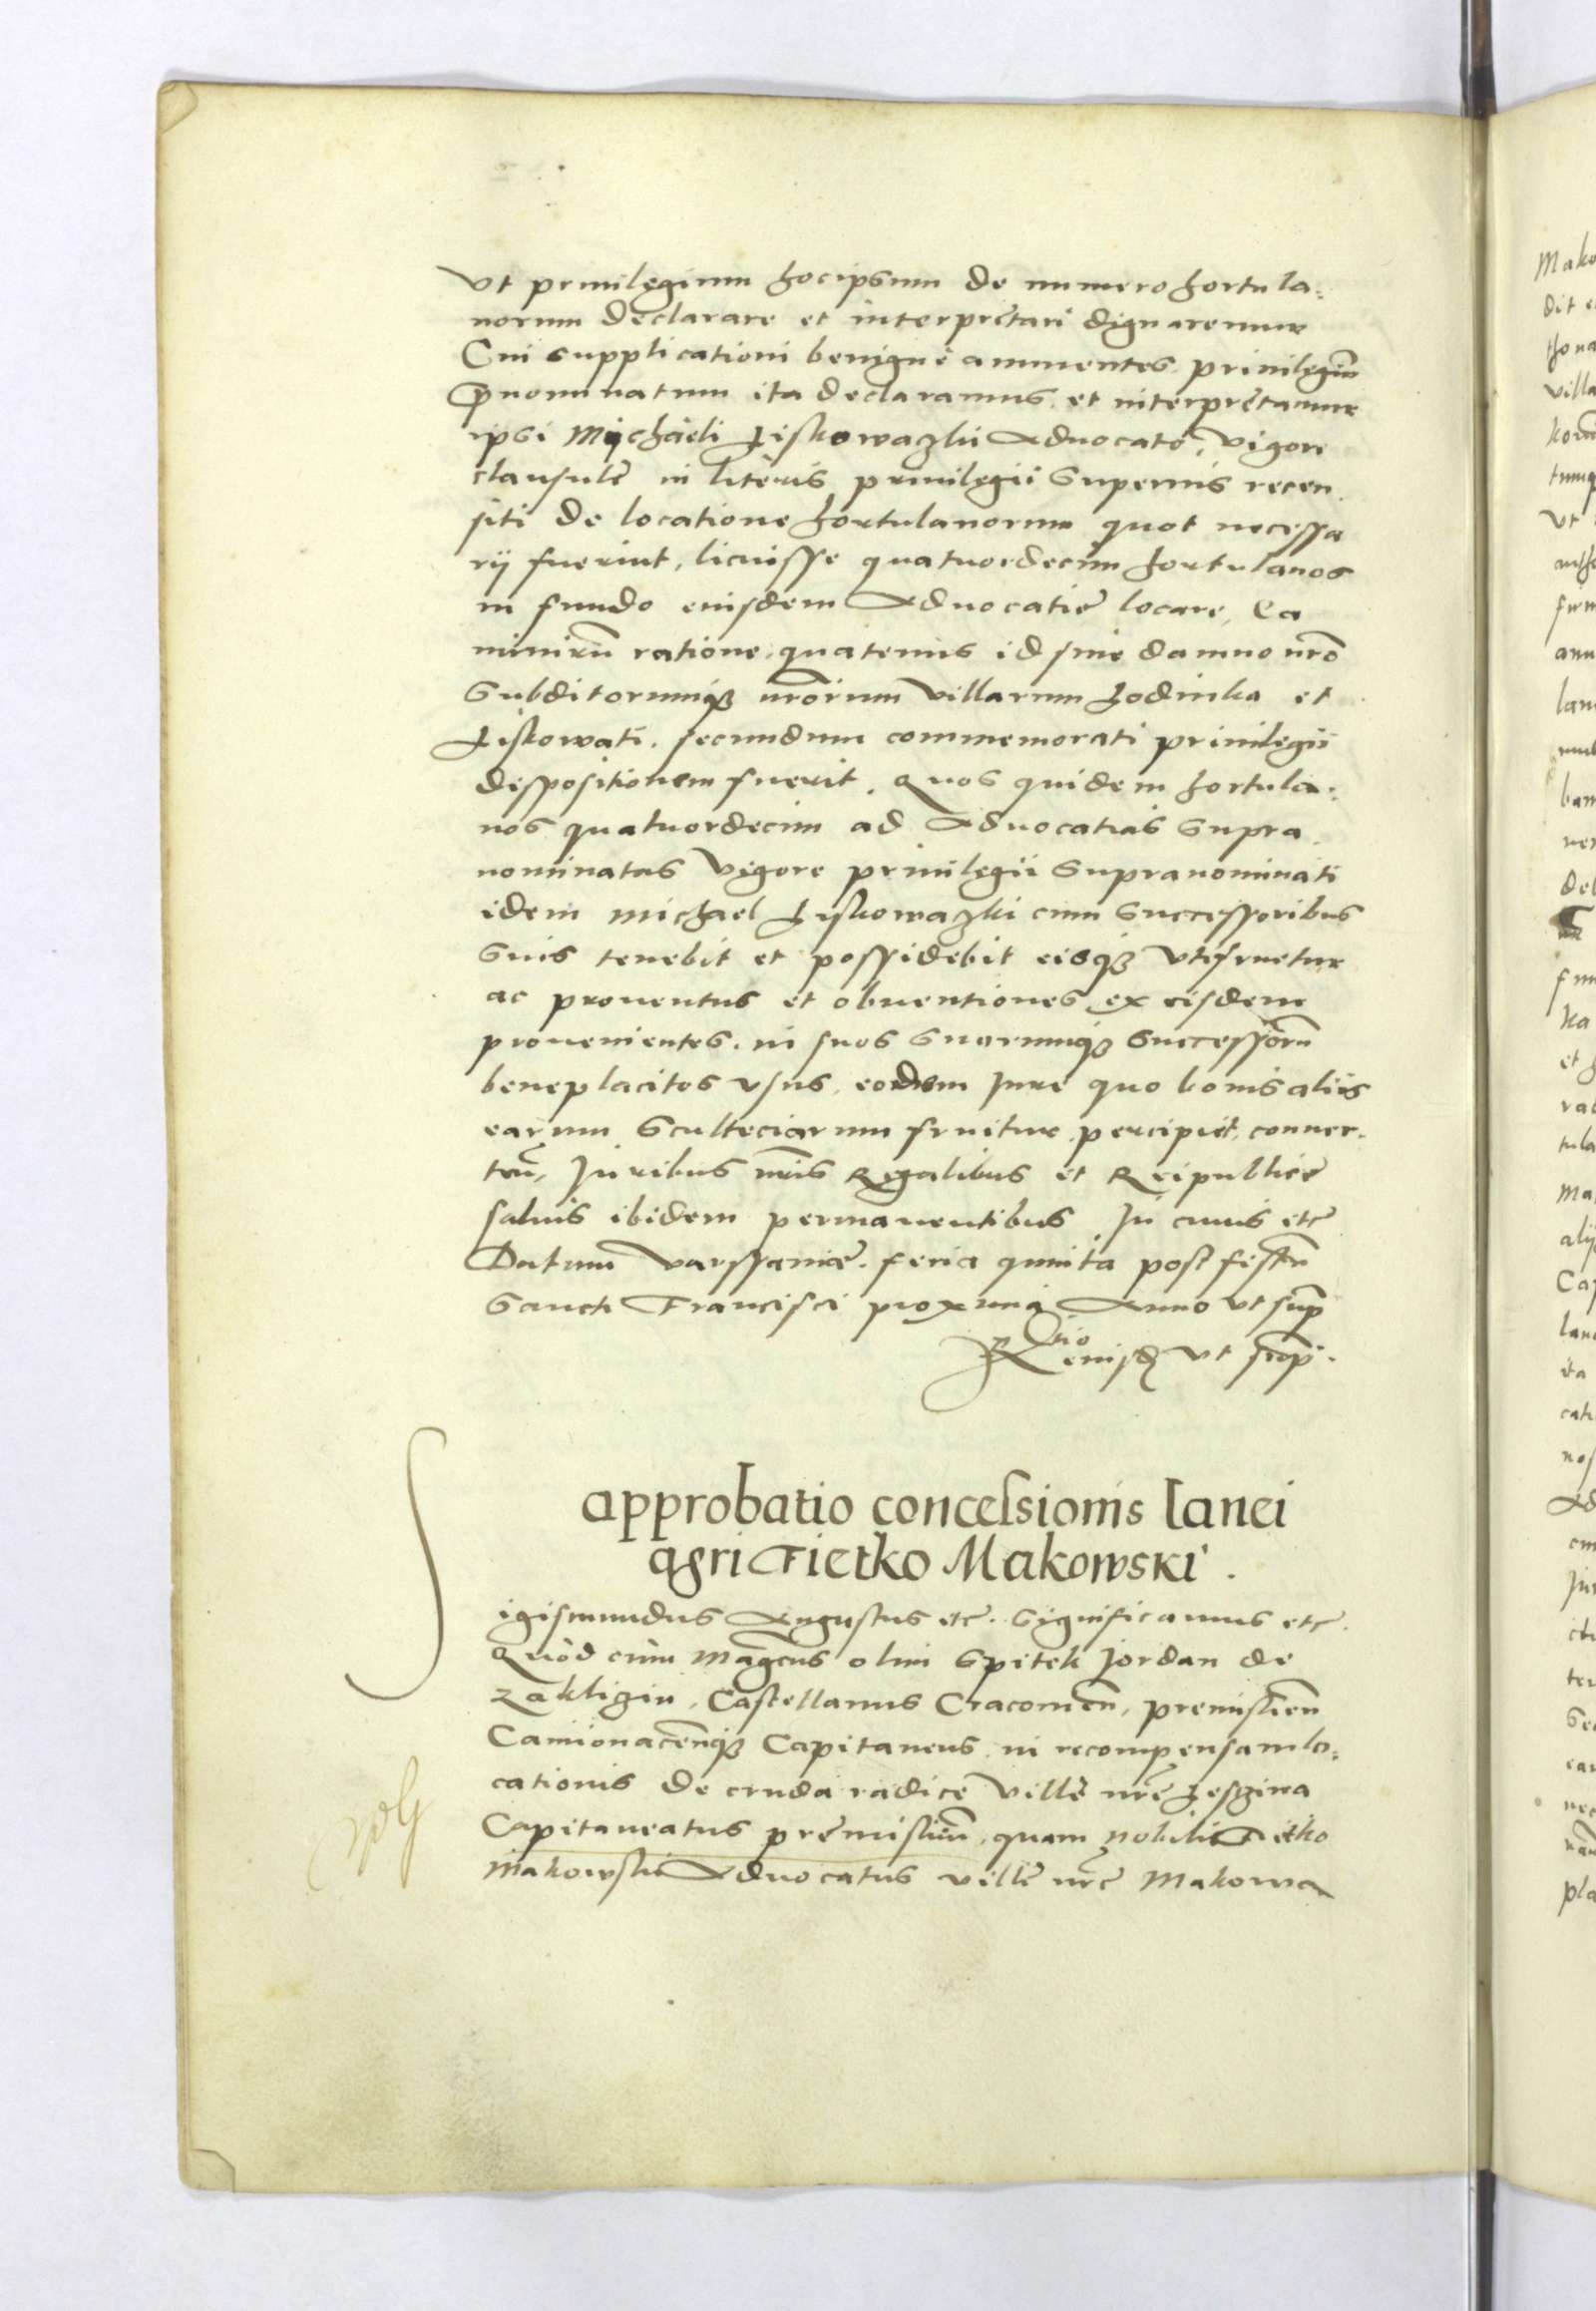 Vt priuilegium hocipsum de numero hortula:
norum declarare et interpretari dignaremur
Cui supplicationi benigne annuentes priuilegiũ
p̃nominatum ita declaramus et interpretamur
ipsi Michaeli Liskowaczki Aduocato, vigore
clausulę in literis priuilegii superius recen
siti de locatione hortulanorum quot necessa
rij fuerint, licuisse quatuordecim hortulanos
in fundo eiusdem Aduocatiæ locare, Ea
nimirũ ratione quatenus id sine damno nrõ
Subditorumqꝫ nrõrum villarum Hodinka et
Liskowati. secundum commemorati priuilegii
dispositionem fuerit. Quos quidem hortula:
nos quatuordecim ad Aduocatias supra
nominatas vigore priuilegii supranominati
idem Michael Liskowazki cum successoribus
suis tenebit et possidebit eisqꝫ vtifruetur
ac prouentus et obuentiones ex eisdem
prouenientes in suos suorumqꝫ successorũ
beneplacitos vsus, eodem jure quo bonis aliis
earum Sculteciarum fruitur percipiet, conuer.
teñ, Juribus nris Regalibus et Reipublicæ
saluis ibidem permanentibus In cuius etc
Datum Varssauiæ. feria quinta post festũ
Sancti Francisci proxima Anno vt sup̃
Rtio eiusd vt sup̃.
approbatio concessionis lanei
agri Fietko Makowski.
Sigismundus Augustus etc. Significamus etc.
Quod cum Magcus olim Spitek Jordan de
Zakliczin, Castellanus Cracouieñ, premislieñ
Camionaceñqꝫ Capitaneus in recompensam lo:
cationis de cruda radice villæ nrę Lesczina
Capitaneatus premislieñ, quam nobilis Fietko
Makowski Aduocatus villę nrę Makowa